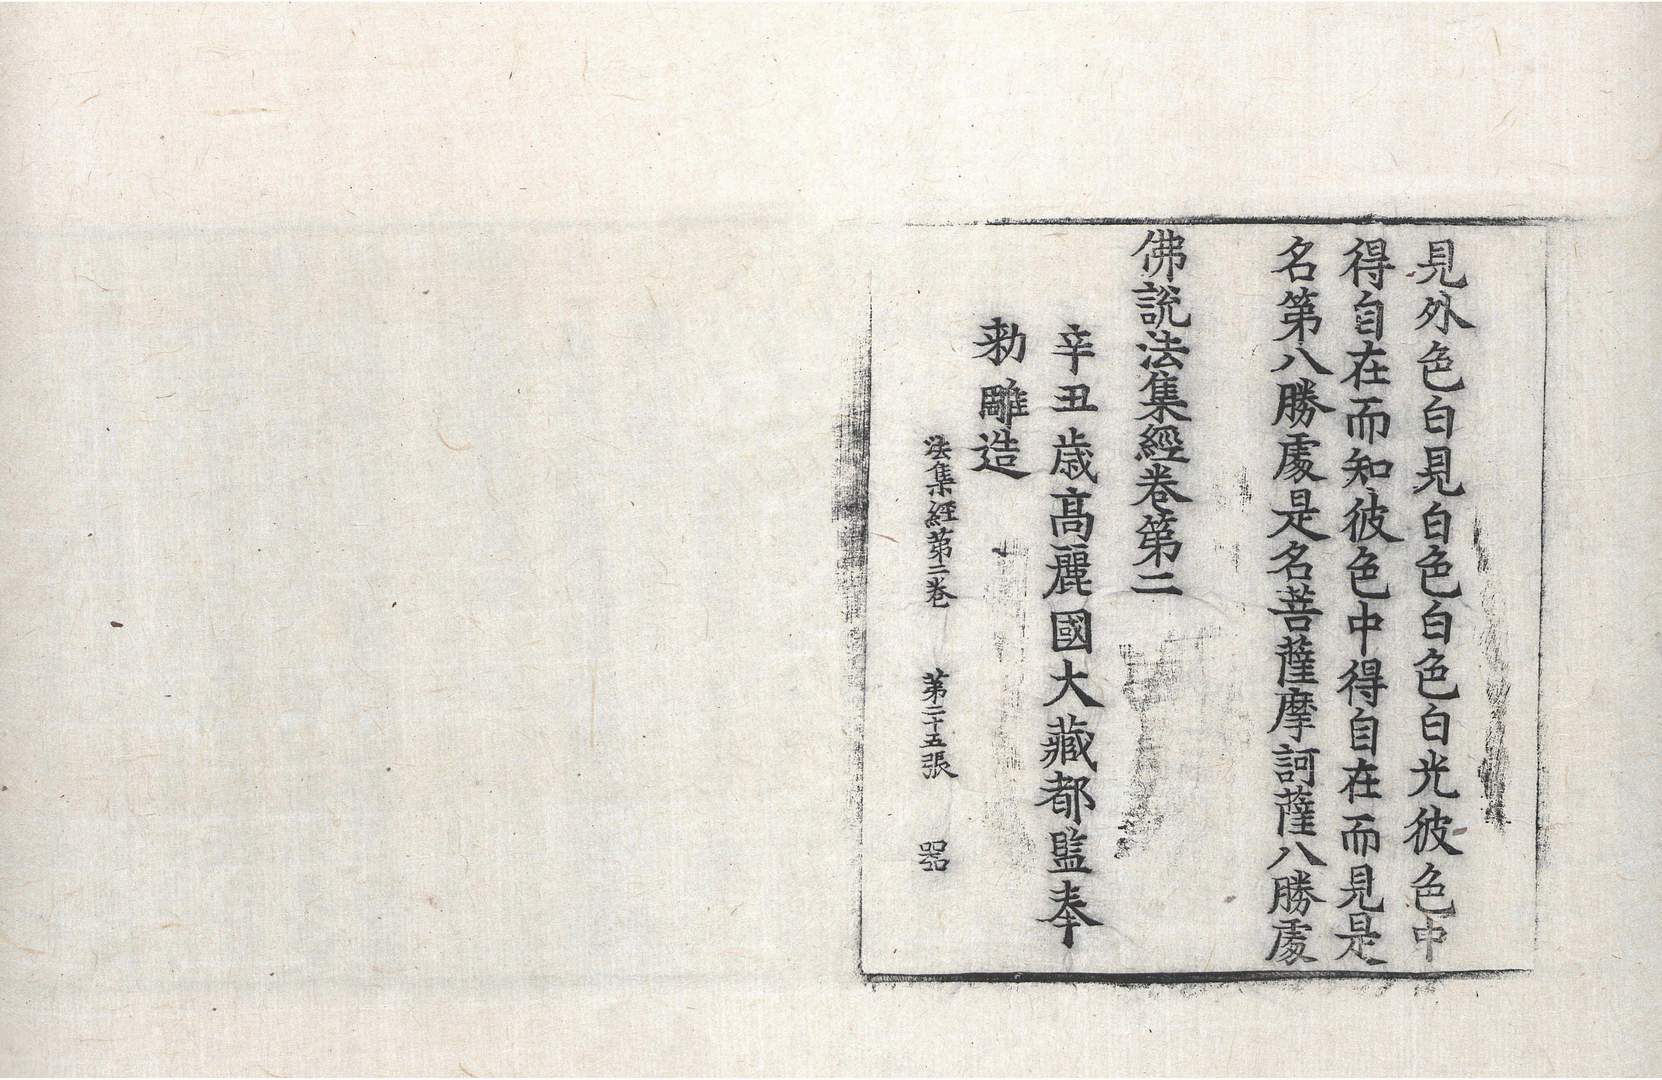 見外色白見白色白色白光彼色中
得自在而知彼色中得自在而見是
名第八勝處是名菩薩摩訶薩八勝處
佛說法集經卷第二
辛丑歳高麗國大藏都監奉
勅雕造
法集經第二卷 第二十五張 器